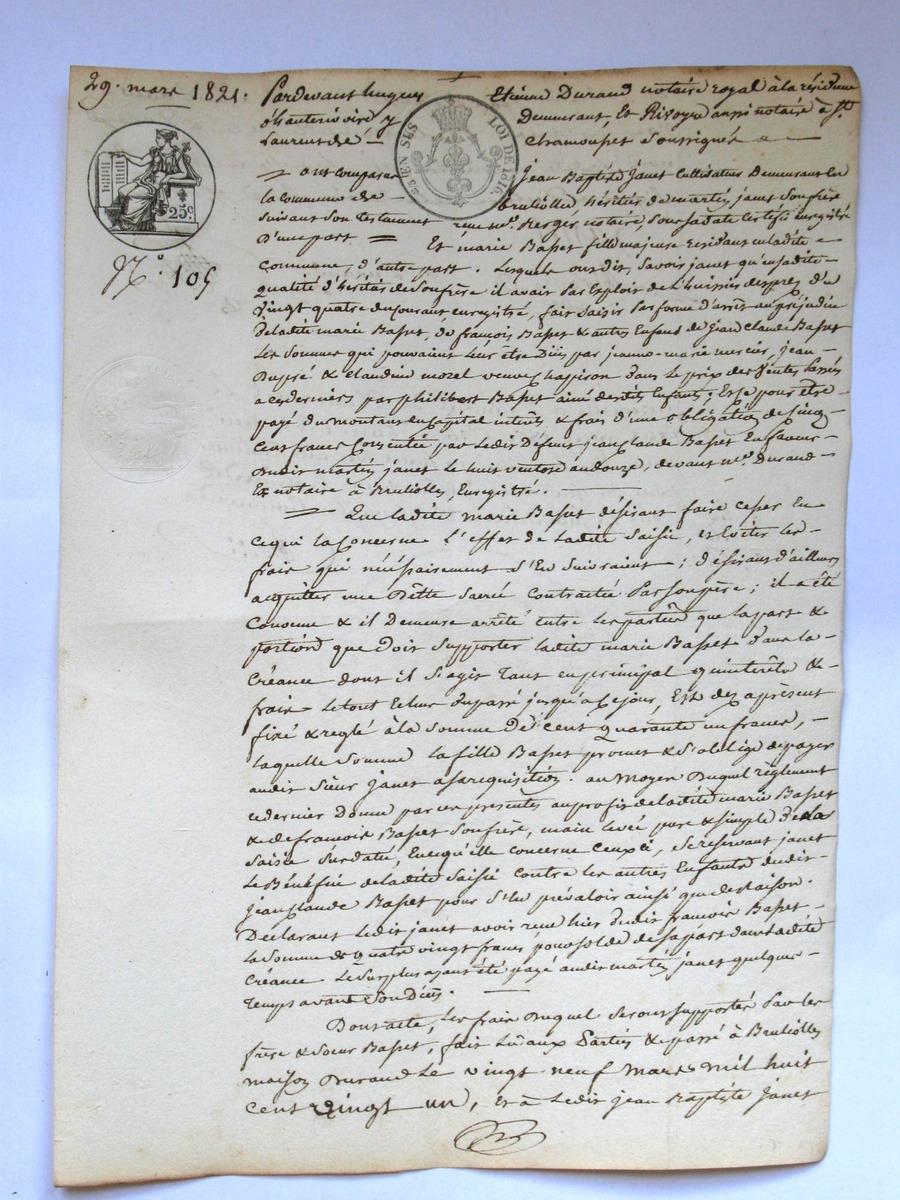 29. mars 1821.
Pardevant hugues Etienne Durand notaire royal à la résidence
d'hauterivoire y demeurant, Et Rivoyre aussi notaire à St.
Laurent de Chamousset Soussignés
25 C. EN SUS
LOI DE 1816.
25 c.
N.° 105
= ont comparu Jean Baptiste Janet Cultivateur Demeurant en
la commune de brulliolles héritier de martin janet Son frère
suivant Son testament reçu me. notaire, Sous Sa date Enregistré
D'une part = Et marie Basset fille majeure residant en ladite
Commune, d'autre part. Lesquels ont dit, Savoir janet qu'en Sadite
qualité d'héritier de Son frère il avait Par Exploit de l'huissier du
vingt quatre du courant enregistré, fait saisir Par forme d'arrêt au préjudice
de ladite marie Basset, de françois Basset & autres Enfans de Jean Claude Basset
Les Sommes qui pouvaient Leur être Dûes par jeanne-marie mercier, jean
Dupré & Claudine morel veuve dans le prix des Ventes Passées
a ces derniers par philibert Basset ainé desdits Enfants; Et ce pour être
payé du montant en Capital intérets & frais d'une obligation de Cinq
Cent francs Consentie par Ledit Défunt jean Claude Basset En faveur
dudit martin janet le huit ventose an douze, devant me. Durand
Ex notaire à Brulliolles, Enregistré.
= Que ladite marie Basset désirant faire cesser En
ce qui la Concerne L'effet de Ladite Saisie, et Eviter les
frais qui nécéssairement S'En Suivraient; désirant d'ailleurs
acquitter une Dette Sacrée Contractée Par Son père; il a été
Convenu & il demeure arrêté entre les parties que la part &
portion que doit Supporter ladite marie Basset dans la
Créance dont il S'agit Tant en principal qu'intérêts &
frais Le tout Echus du passé jusqu'à ce jour, Est dez aprésent
fixé & reglé à la Somme De cent quarante un francs,
laquelle Somme la fille Basset promet & S'oblige de payer
audit Sieur Janet a Sa requisition. au Moyen Duquel règlement
ce dernier donne par ces présentes au profit de ladite marie Basset
& de francois Basset Son frère, main levée pure & simple de la
Saisie Susdatée, En ce qu'elle concerne Ceux ci, Se reservant janet
Le Bénéfice de ladite Saisie Contre les autres Enfants dudit
jean Claude Basset pour S'En prévaloir ainsi que de Raison.
Déclarant Ledit janet avoir reçu hier dudit françois Basset
La Somme de quatre vingt francs pour Solde de Sa part dans ladite
Créance Le Surplus ayant été payé audit martin janet quelque
Temps avant Son Décès.
Dont acte, Les frais Duquel Seront Supportés Par les
frère & Soeur Basset, fait Lu aux Parties & passé à Brulliolles
maison Durand Le vingt neuf Mars mil huit
cent vingt un, et à Ledit jean Baptiste Janet